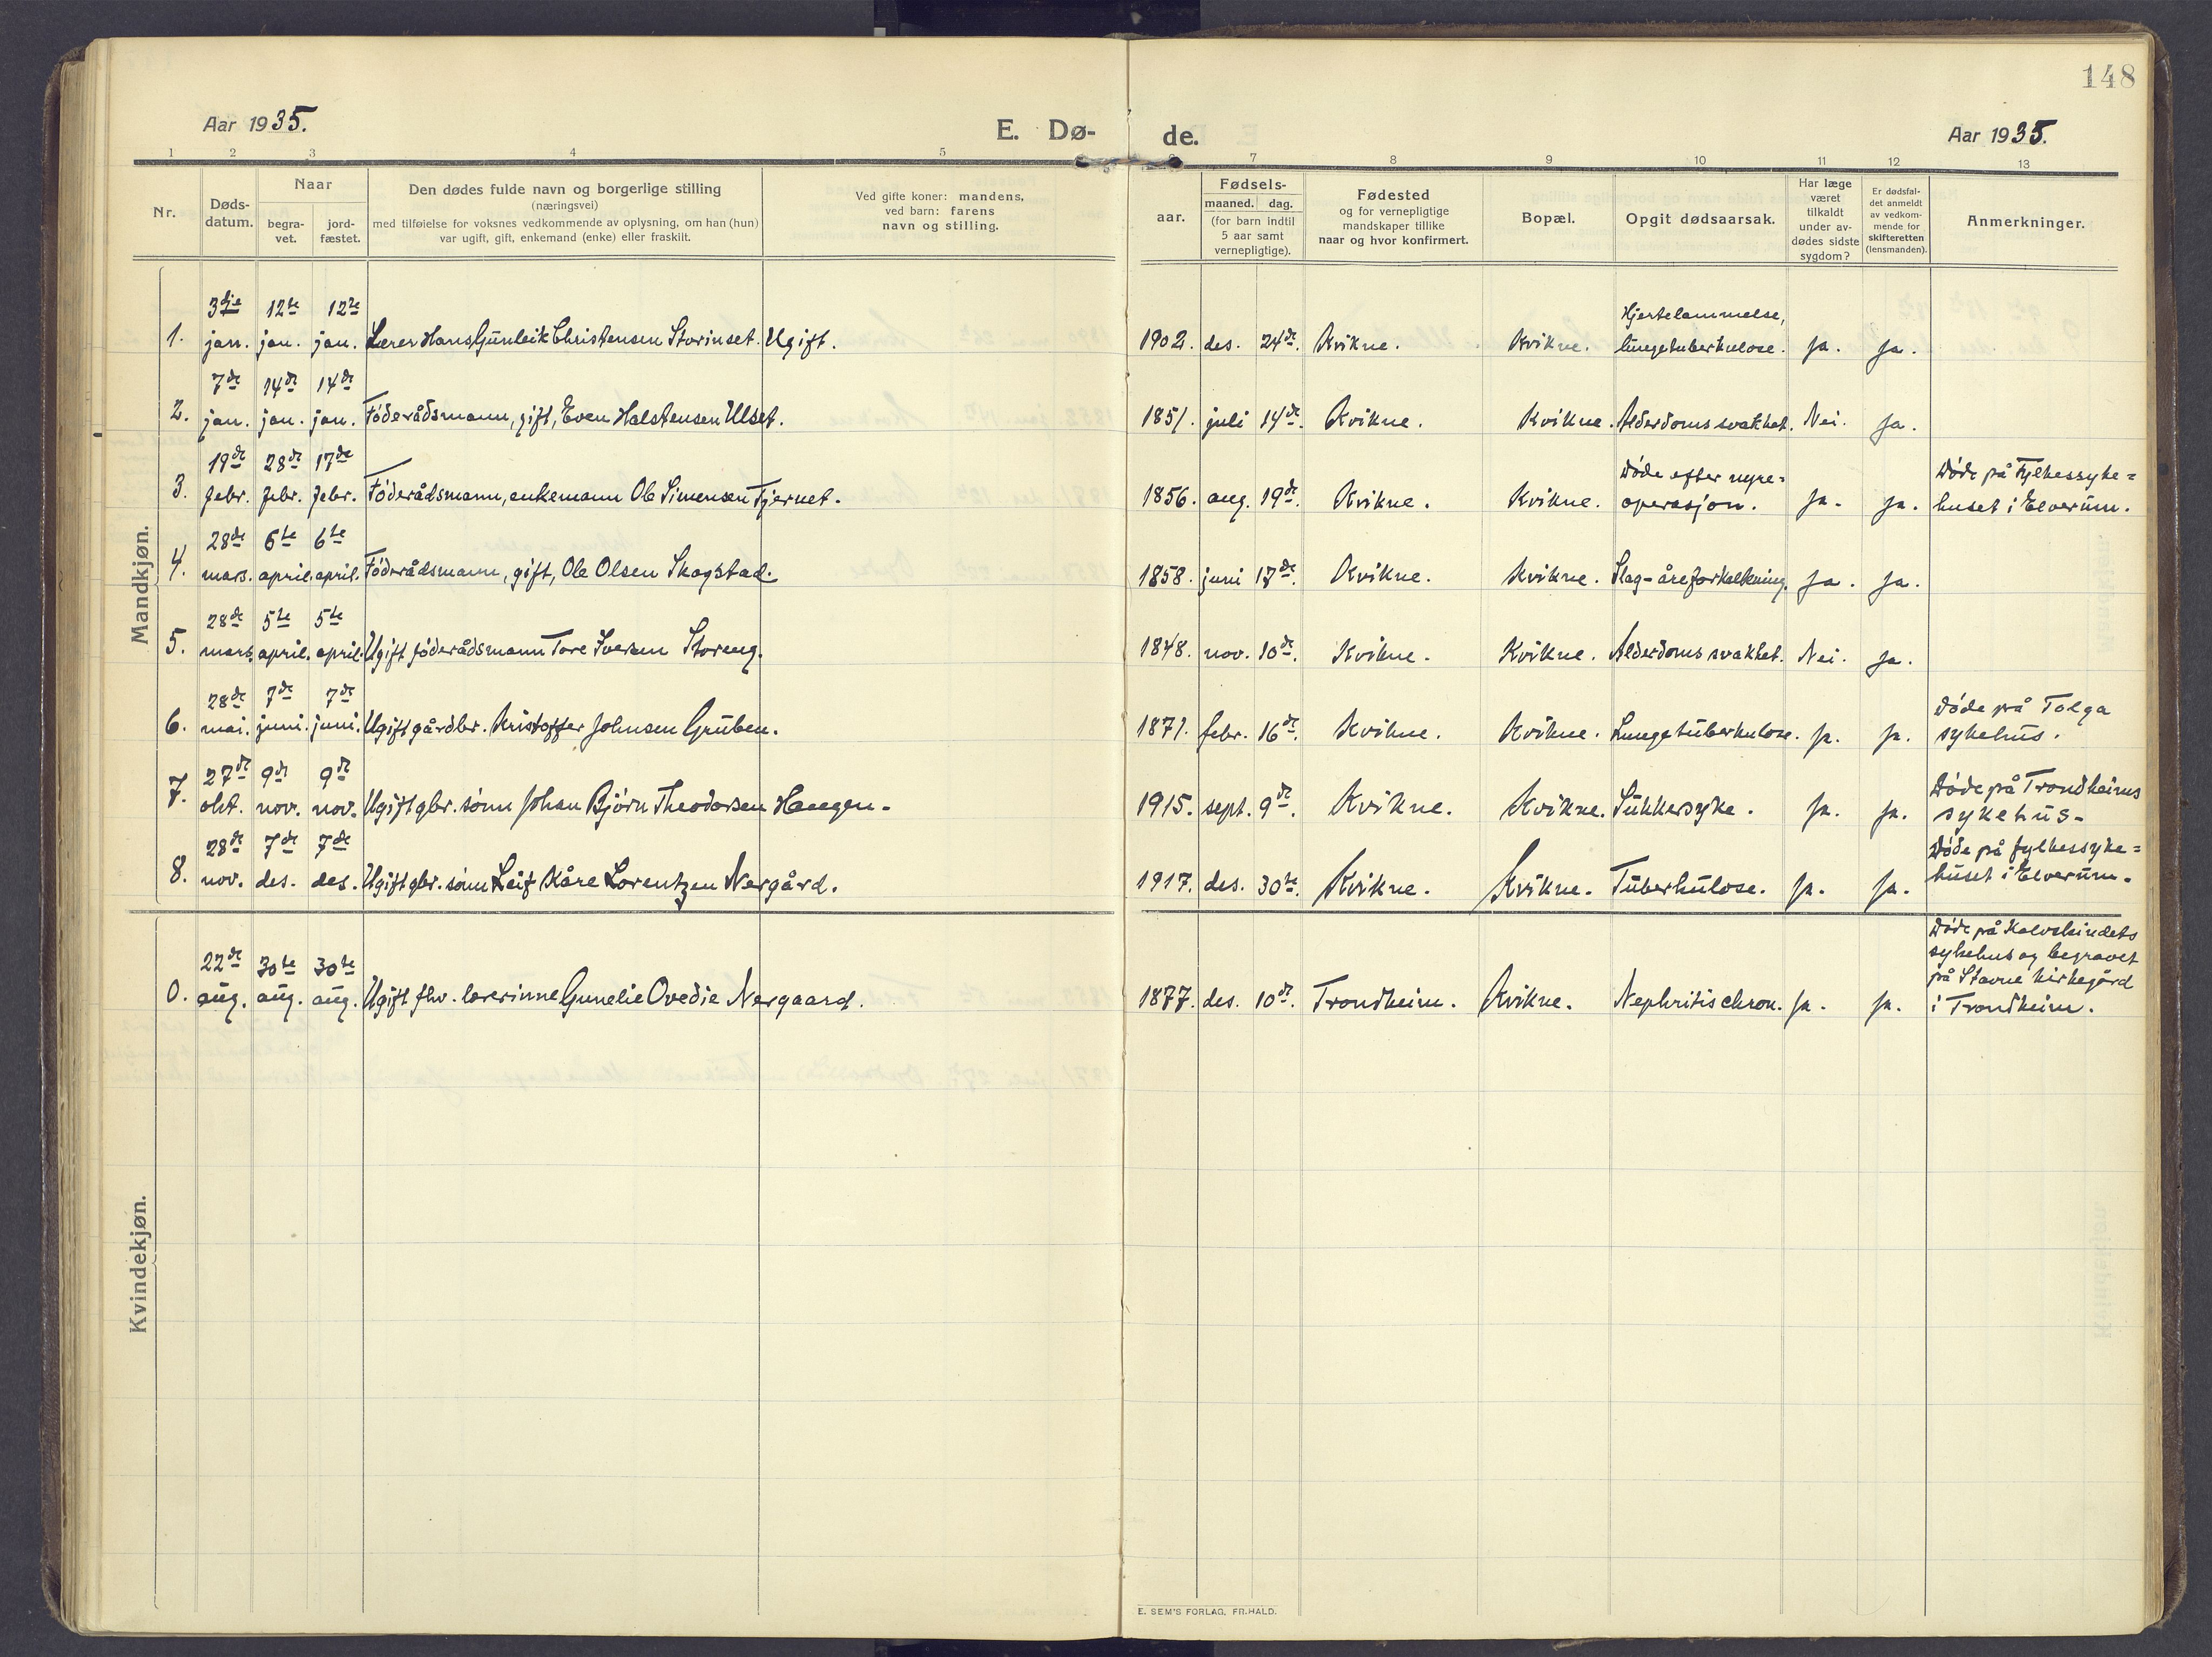 148
Aar 1935.
E. Dø- de.
Aar 1935.
1 2 3 4 5 7 8 9 10 11 12 13
Nr.
Døds-
datum.
Naar
begra-
vet.
jord-
fæstet.
Den dødes fulde navn og borgerlige stilling
(næringsvei)
med tilføielse for voksnes vedkommende av oplysning, om han (hun)
var ugift, gift, enkemand (enke) eller fraskilt.
Ved gifte koner: mandens,
ved barn: farens
navn og stilling.
aar.
Fødsels-
maaned. dag.
(for barn indtil
5 aar samt
vernepligtige).
Fødested
og for vernepligtige
mandskaper tillike
naar og hvor konfirmert.
Bopæl.
Opgit dødsaarsak.
Har læge
været
tilkaldt
under av-
dødes sidste
sygdom?
Er dødsfal-
det anmeldt
av vedkom-
mende for
skifteretten
(lensmanden).
Anmerkninger.
Mandkjøn.
3dje 12te 12te Hjertelammelse,
1. jan. jan. jan. Lærer Hans Gunleik Christensen Storinset. Ugift. 1902. des. 24de. Kvikne. Kvikne. lungetuberkulose. Ja. Ja.
7de 14de 14de
2. jan. jan. jan. Föderådsmann, gift, Even Halstensen Ulset. 1851. juli 14de. Kvikne. Kvikne. Alderdomssvakhet. Nei. Ja.
19de 28de 17de Døde efter nyre- Døde på Fylkessyke=
3. febr. febr. febr. Föderådsmann, enkemann Ole Simensen Tjernet. 1856. aug. 19de. Kvikne. Kvikne. operasjon. Ja. Ja. huset i Elverum.
28de 6te 6te
4. mars. april. april. Föderådsmann, gift, Ole Olsen Skogstad. 1858. juni 17de. Kvikne. Kvikne. Slag-åreforkalkning. Ja. Ja.
28de 5te 5te
5. mars. april. april. Ugift föderådsmann Tore Iversen Storeng. 1848. nov. 10de. Kvikne. Kvikne. Alderdomssvakhet. Nei. Ja.
28de 7de 7de Døde på Tolga
6. mai. juni. juni. Ugift gårdbr. Kristoffer Johnsen Gruben. 1871. febr. 16de. Kvikne. Kvikne. Lungetuberkulose. Ja. Ja. sykehus.
27de 9de 9de Døde på Trondheims
7. okt. nov. nov. Ugift gbr. sønn Johan Bjørn Theodorsen Haugen. 1915. sept. 9de. Kvikne. Kvikne. Sukkersyke. Ja. Ja. sykehus.
28de 7de 7de Døde på fylkessyke=
8. nov. des. des. Ugift gbr. sønn Leif Kåre Lorentzen Nergård. 1917. des. 30te. Kvikne. Kvikne. Tuberkulose. Ja. Ja. huset i Elverum.
Kvindekjøn.
Døde på Kalvskindets
sykehus og begravet
22de 30te 30te på Stavne kirkegård
0. aug. aug. aug. Ugift fhv. lærerinne Gunelie Ovedie Nergaard. 1877. des. 10de. Trondheim. Kvikne. Nephritis chron. Ja. Ja. i Trondheim.
E. SEM'S FORLAG, FR.HALD.